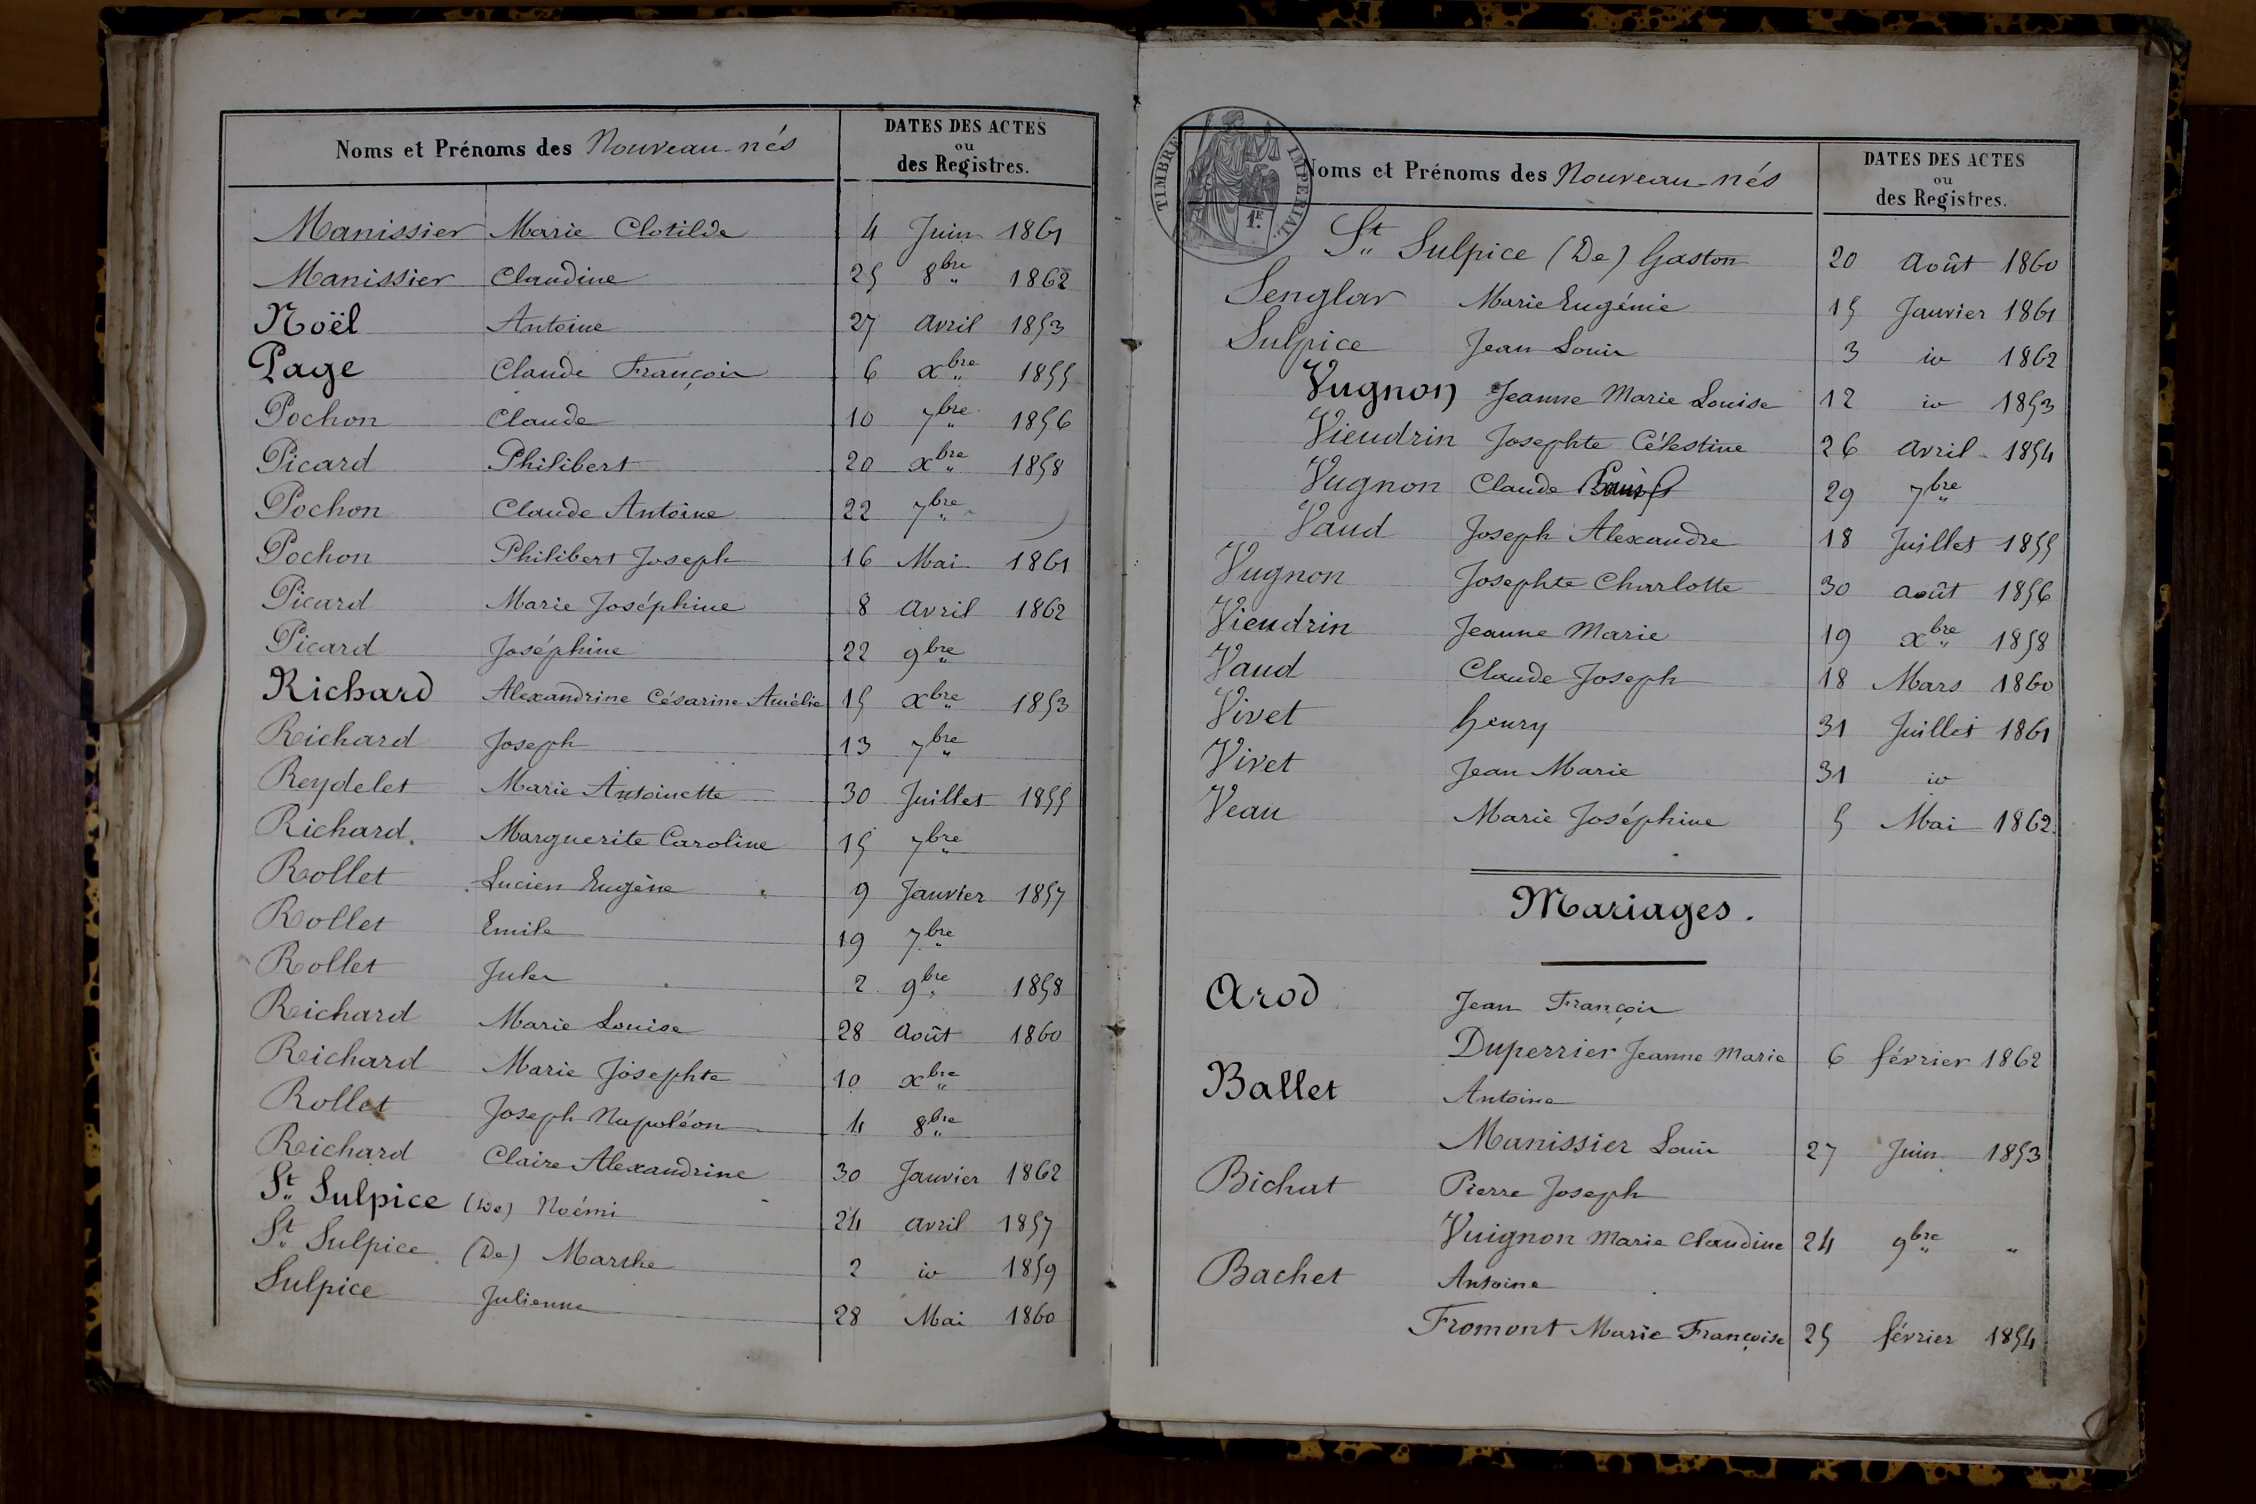 Noms et Prénoms des Nouveau-nés
DATES DES ACTES
ou
des Registres.
Manissier Marie Clotilde 4 Juin 1861
Manissier Claudine 25 8bre 1862
Noël Antoine 27 avril 1853
Page Claude François 6 xbre 1855
Pochon Claude 10 7bre 1856
Picard Philibert 20 xbre 1858
Pochon Claude Antoine 22 7bre "
Pochon Philibert Joseph 16 Mai 1861
Picard Marie Joséphine 8 avril 1862
Picard Joséphine 22 9bre
Richard Alexandrine Césarine Amélie 15 xbre 1853
Richard Joseph 13 7bre
Reydelet Marie Antoinette 30 Juillet 1855
Richard. Marguerite Caroline 15 7bre
Rollet Lucien Eugène 9 Janvier 1857
Rollet Emile 19 7bre
Rollet Jules 2 9bre 1858
Richard Marie Louise 28 août 1860
Richard Marie Josephte 10 xbre
Rollet Joseph Napoléon 4 8bre
Richard Claire Alexandrine 30 Janvier 1862
St Sulpice (De) Noémi 24 avril 1857
St Sulpice (De) Marthe 2 id 1859
Sulpice Julienne 28 Mai 1860
TIMBRE IMPÉRIAL
1.F
Noms et Prénoms des Nouveau-nés
DATES DES ACTES
ou
des Registres.
St Sulpice (De) Gaston 20 août 1860
Senglar Marie Eugénie 15 Janvier 1861
Sulpice Jean Louis 3 id 1862
Vugnon Jeanne Marie Louise 12 id 1853
Vieudrin Josephte Célestine 26 avril 1854
Vugnon Claude 29 7bre
Vaud Joseph Alexandre 18 Juillet 1855
Vugnon Josephte Charlotte 30 août 1856
Vieudrin Jeanne Marie 19 xbre 1858
Vaud Claude Joseph 18 Mars 1860
Vivet henry 31 Juillet 1861
Vivet Jean Marie 31 id
Veau Marie Joséphine 5 Mai 1862
Mariages.
Arod Jean François
Duperrier Jeanne Marie 6 février 1862
Ballet Antoine
Manissier Louis 27 Juin 1853
Bichat Pierre Joseph
Vuignon Marie Claudine 24 9bre "
Bachet Antoine
Fromont Marie Françoise 25 février 1854